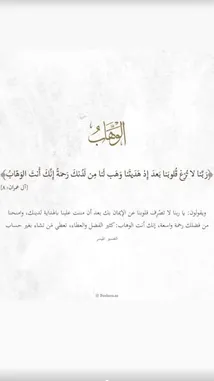 الوهاب
﴿رَبَّنَا لَا تُزِغْ قُلُوبَنَا بَعْدَ إِذْ هَدَيْتَنَا وَهَبْ لَنَا مِن لَّدُنكَ رَحْمَةً إِنَّكَ أَنتَ الْوَهَّابُ﴾
[آل عمران: ٨]
ويقولون: يا ربنا لا تصرف قلوبنا عن الإيمان بك بعد أن مننت علينا بالهداية لدينك، وامنحنا
من فضلك رحمة واسعة، إنك أنت الوهاب: كثير الفضل والعطاء، تعطي مَن تشاء بغير حساب
التفسير الميسر